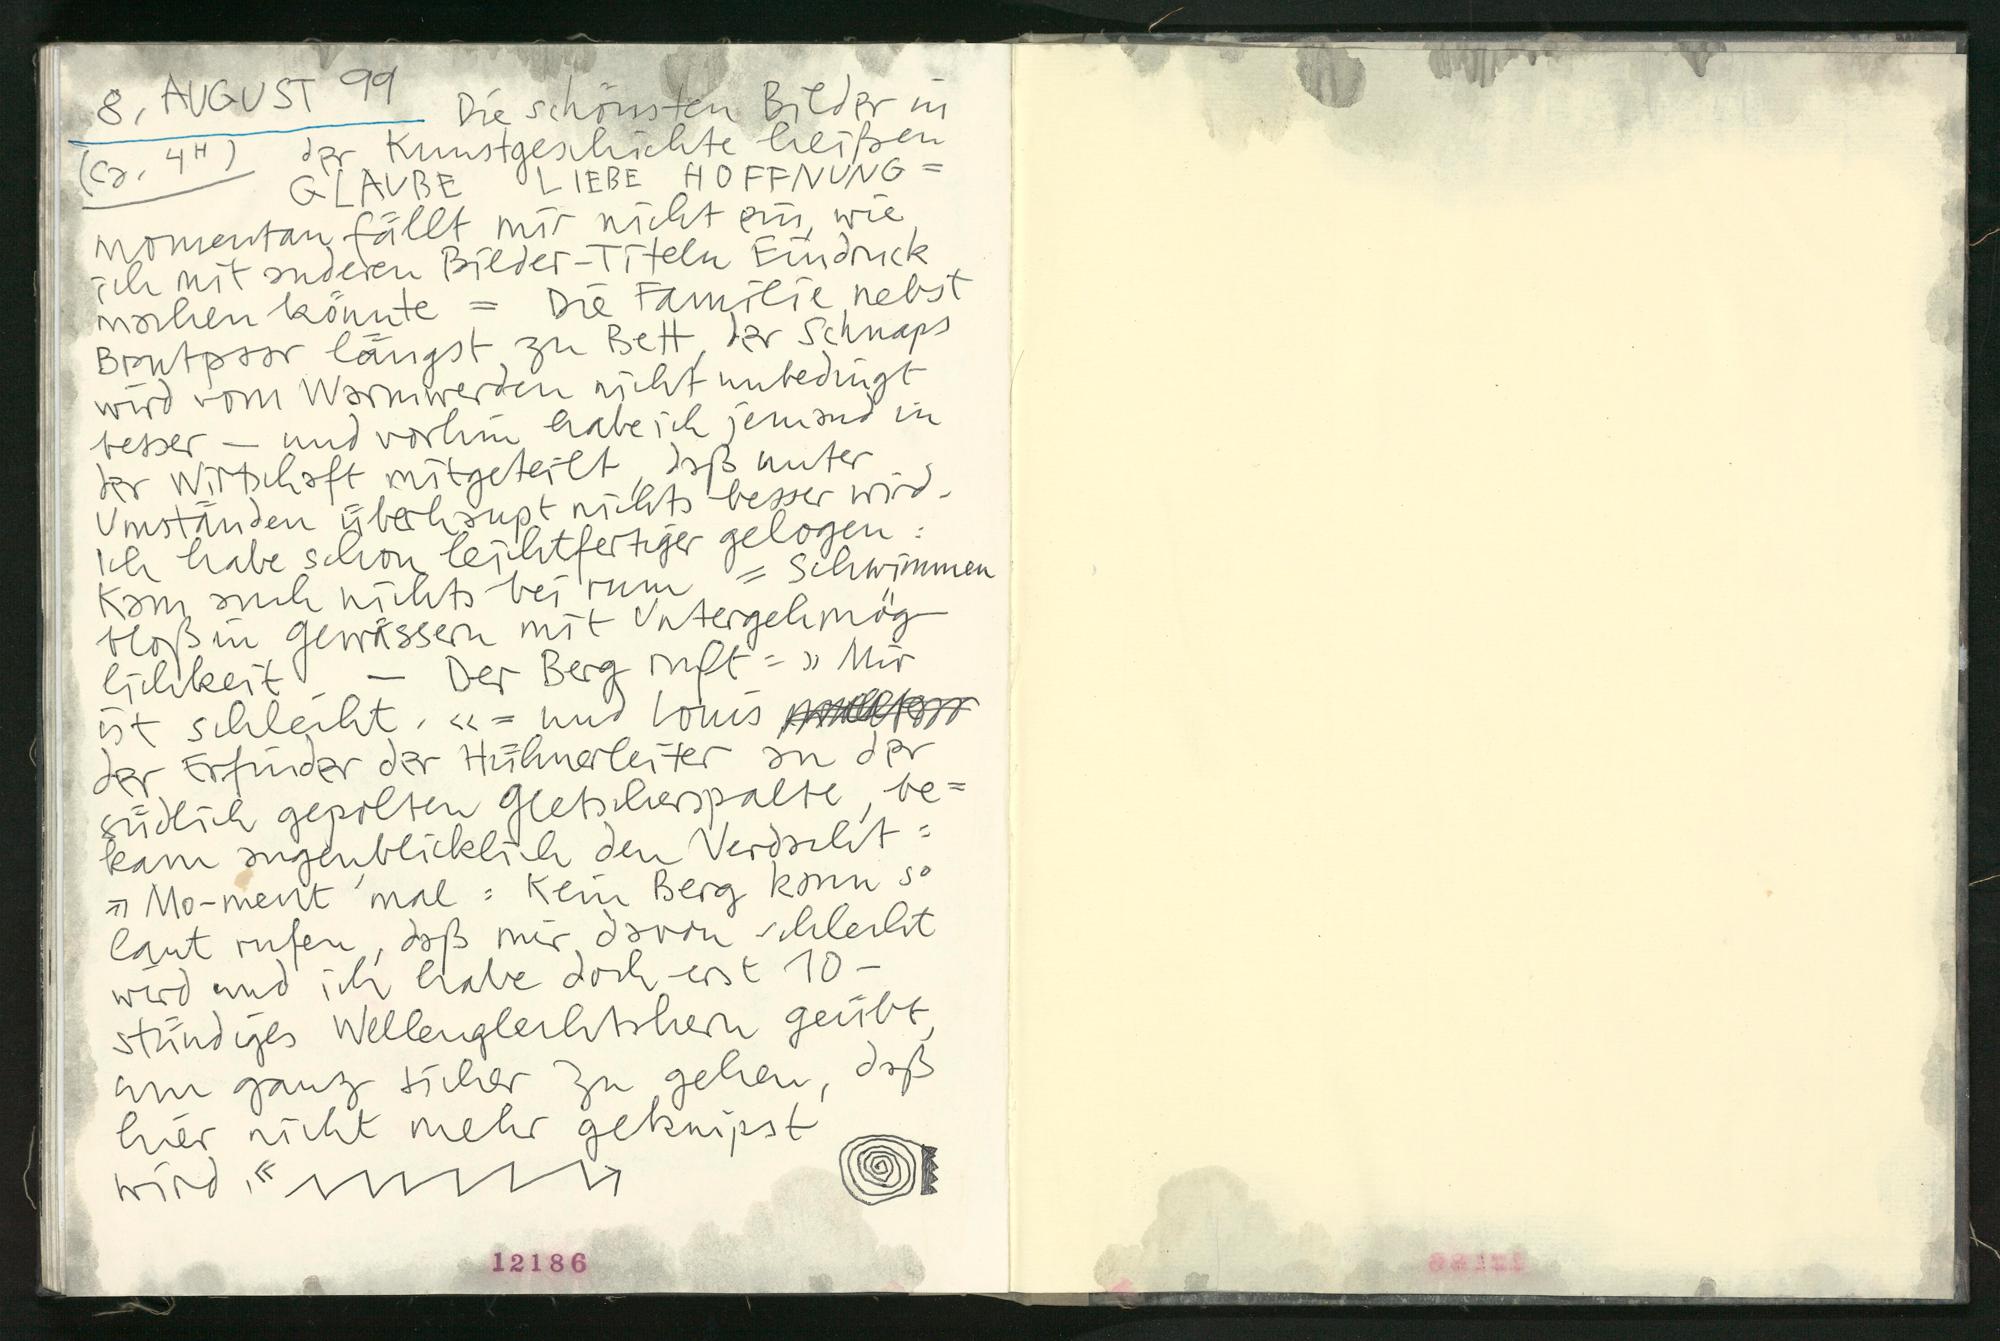 8. AUGUST 99
Die schönsten Bilder in
(ca. 4H) der Kunstgeschichte heißen
GLAUBE LIEBE HOFFNUNG =
momentan fällt mir nicht ein, wie
ich mit anderen Bilder-Titeln Eindruck
machen könnte = Die Familie nebst
Brautpaar längst zu Bett, der Schnaps
wird vom Warmwerden nicht unbedingt
besser – und vorhin habe ich jemand in
der Wirtschaft mitgeteilt, daß unter
Umständen überhaupt nichts besser wird.
Ich habe schon leichtfertiger gelogen :
Kam auch nichts bei rum = Schwimmen
bloß in Gewässern mit Untergehmög-
lichkeit – Der Berg ruft = » Mir
ist schlecht. « = und Louis
der Erfinder der Hühnerleiter an der
südlich gepolten Gletscherspalte, be=
kam augenblicklich den Verdacht =
» Mo-ment 'mal : Kein Berg kann so
laut rufen, daß mir davon schlecht
wird und ich habe doch erst 10-
stündiges Wellenglechtshern geübt,
um ganz sicher zu gehen, daß
hier nicht mehr geknipst
wird. «
12186